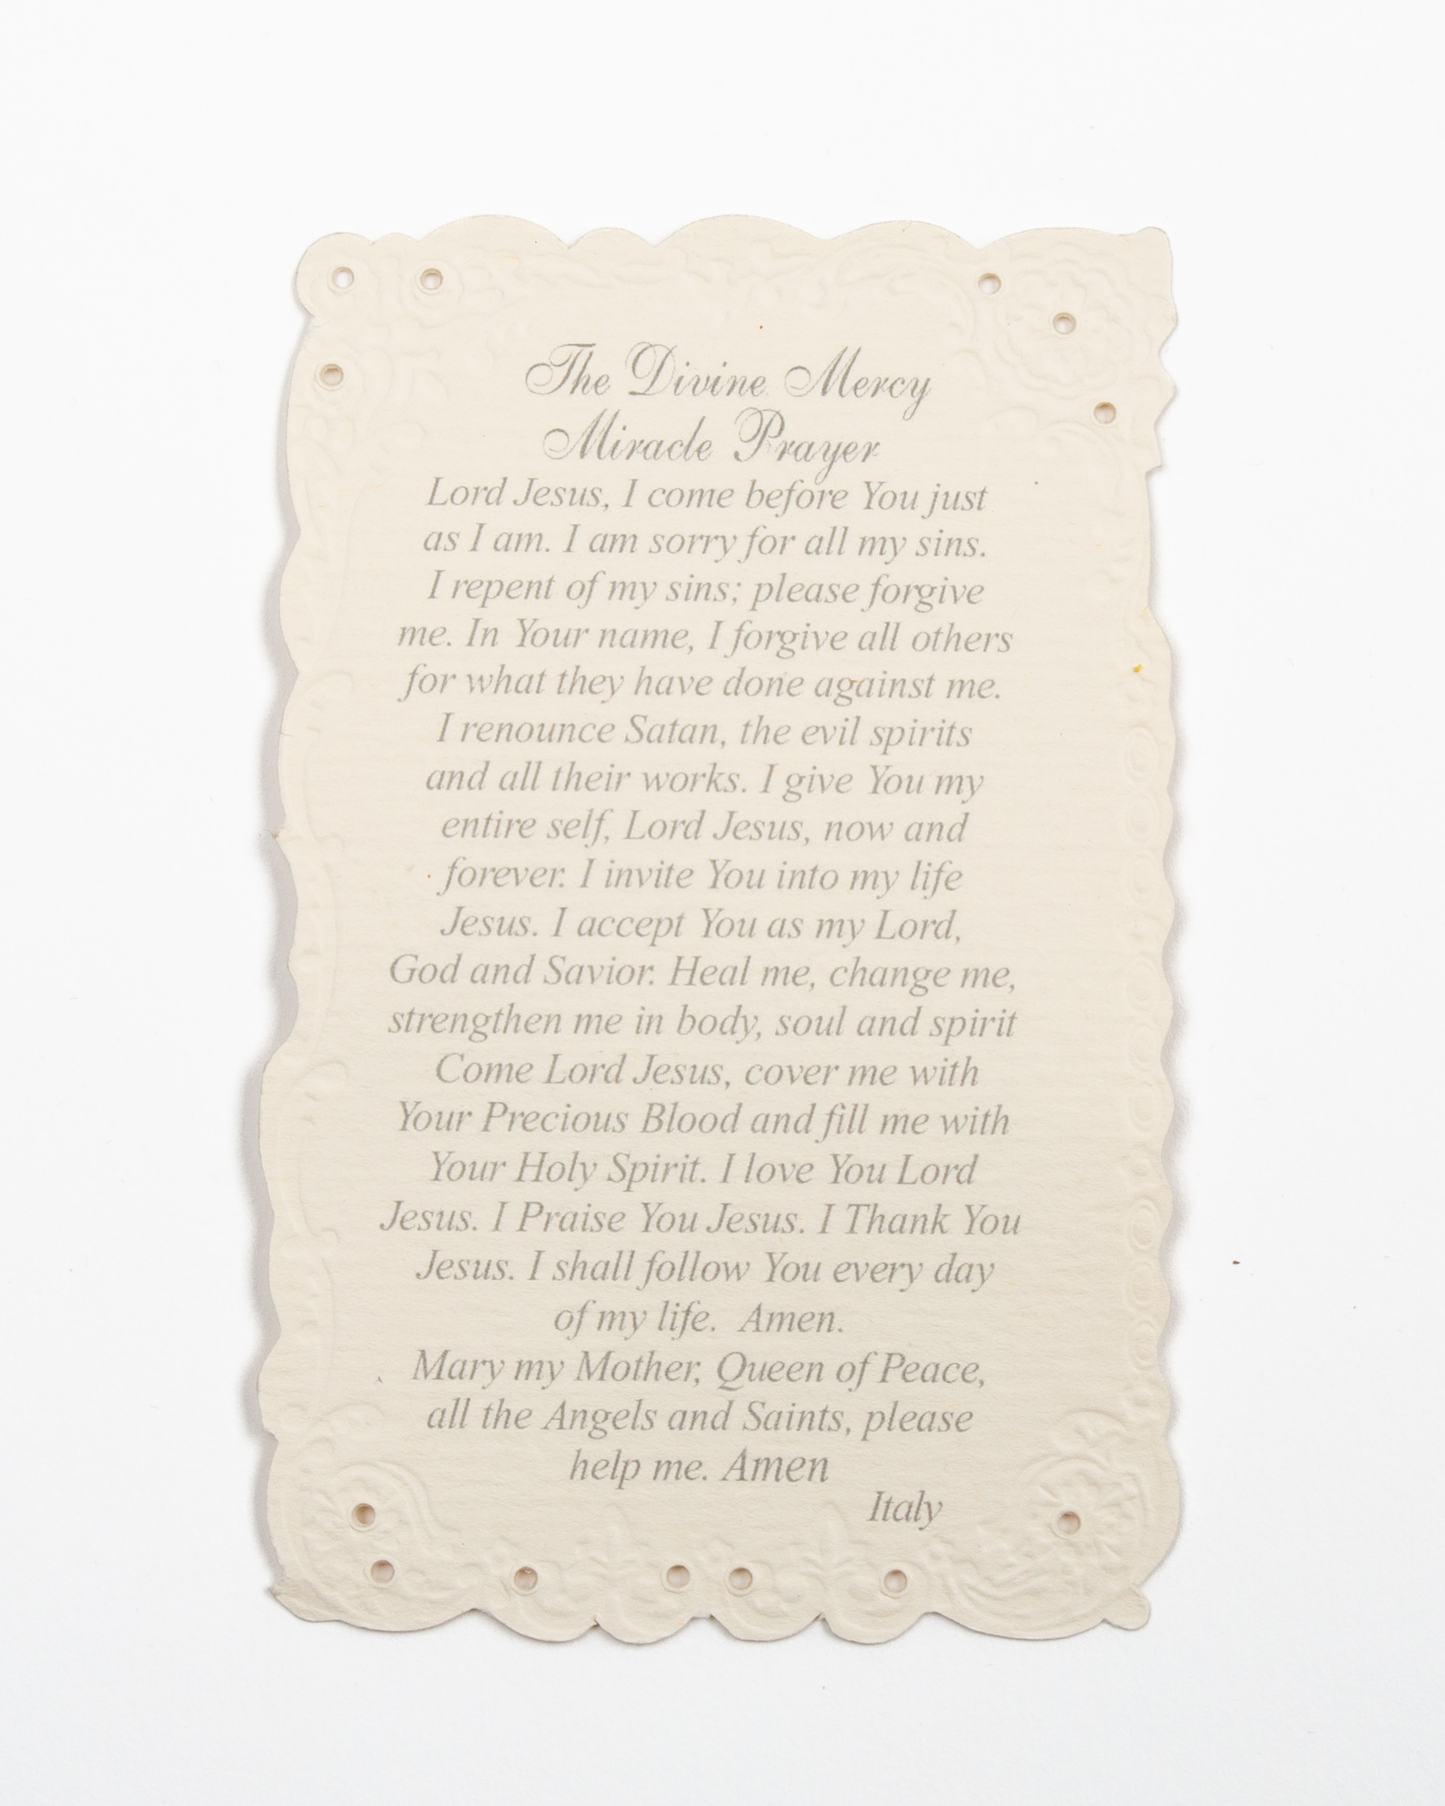 The Divine Mercy
Miracle Prayer
Lord Jesus, I come before You just
as I am. I am sorry for all my sins.
I repent of my sins; please forgive
me. In Your name, I forgive all others
for what they have done against me.
I renounce Satan, the evil spirits
and all their works. I give You my
entire self, Lord Jesus, now and
forever. I invite You into my life
Jesus. I accept You as my Lord,
God and Savior. Heal me, change me,
strengthen me in body, soul and spirit
Come Lord Jesus, cover me with
Your Precious Blood and fill me with
Your Holy Spirit. I love You Lord
Jesus. I Praise You Jesus. I Thank You
Jesus. I shall follow You every day
of my life.  Amen.
Mary my Mother, Queen of Peace,
all the Angels and Saints, please
help me. Amen
Italy